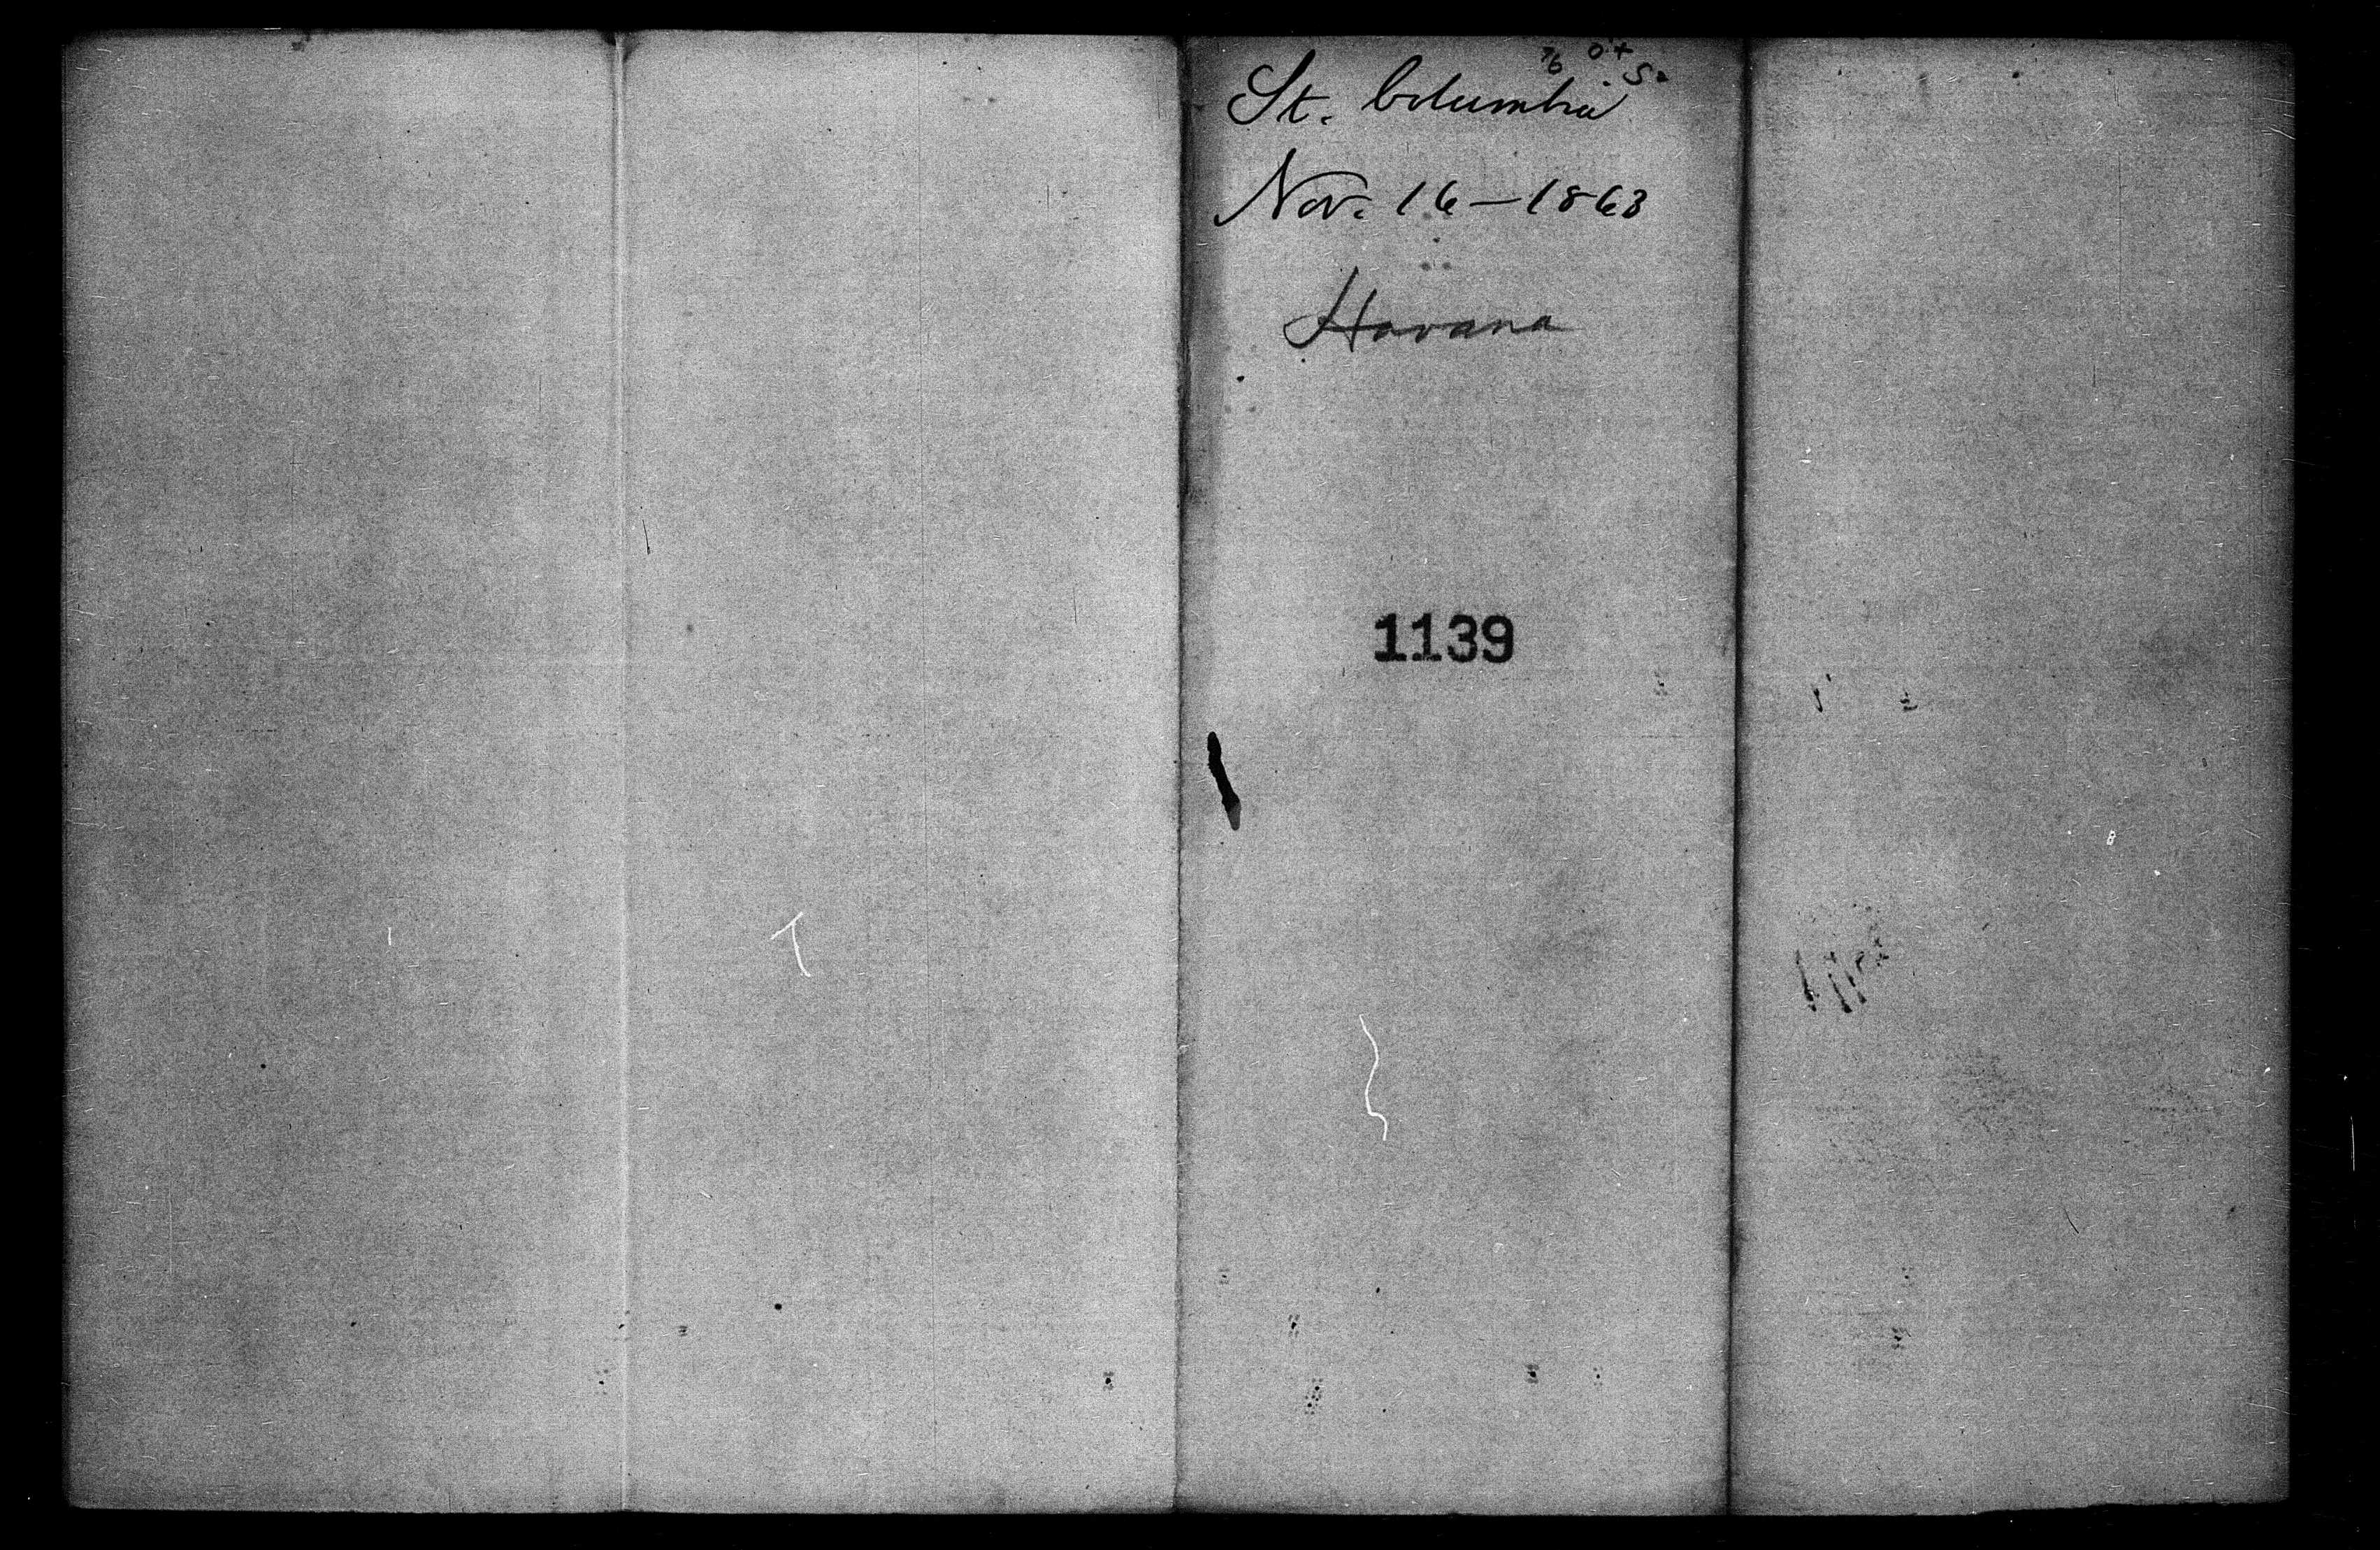 St. Columbia
Nov. 16 - 1863
Havana
1139